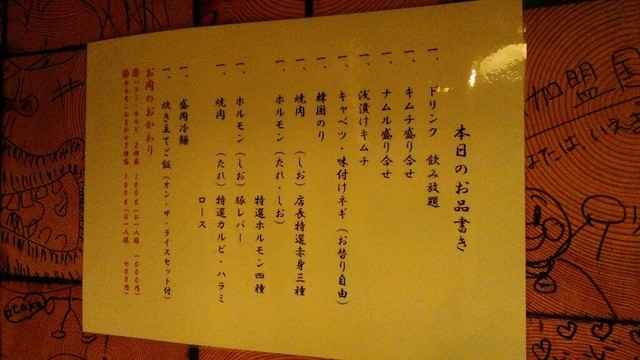 本日のお品書き
一、ドリンク 飲み放題
一、キムチ盛り合せ
一、ナムル盛り合せ
一、浅漬けキムチ
一、キャベツ・味付けネギ(お替り自由)
一、韓国のり
一、焼肉 (しお) 店長特選赤身三種
一、ホルモン(たれ・しお)
特選ホルモン四種
一、ホルモン (しお) 豚レバー
一、焼肉 (たれ) 特選カルビ・ハラミ
ロース
一、盛岡冷麺
一、炊き立てご飯(オン・ザ・ライスセット付)
お肉のおかわり
加盟国
otaku